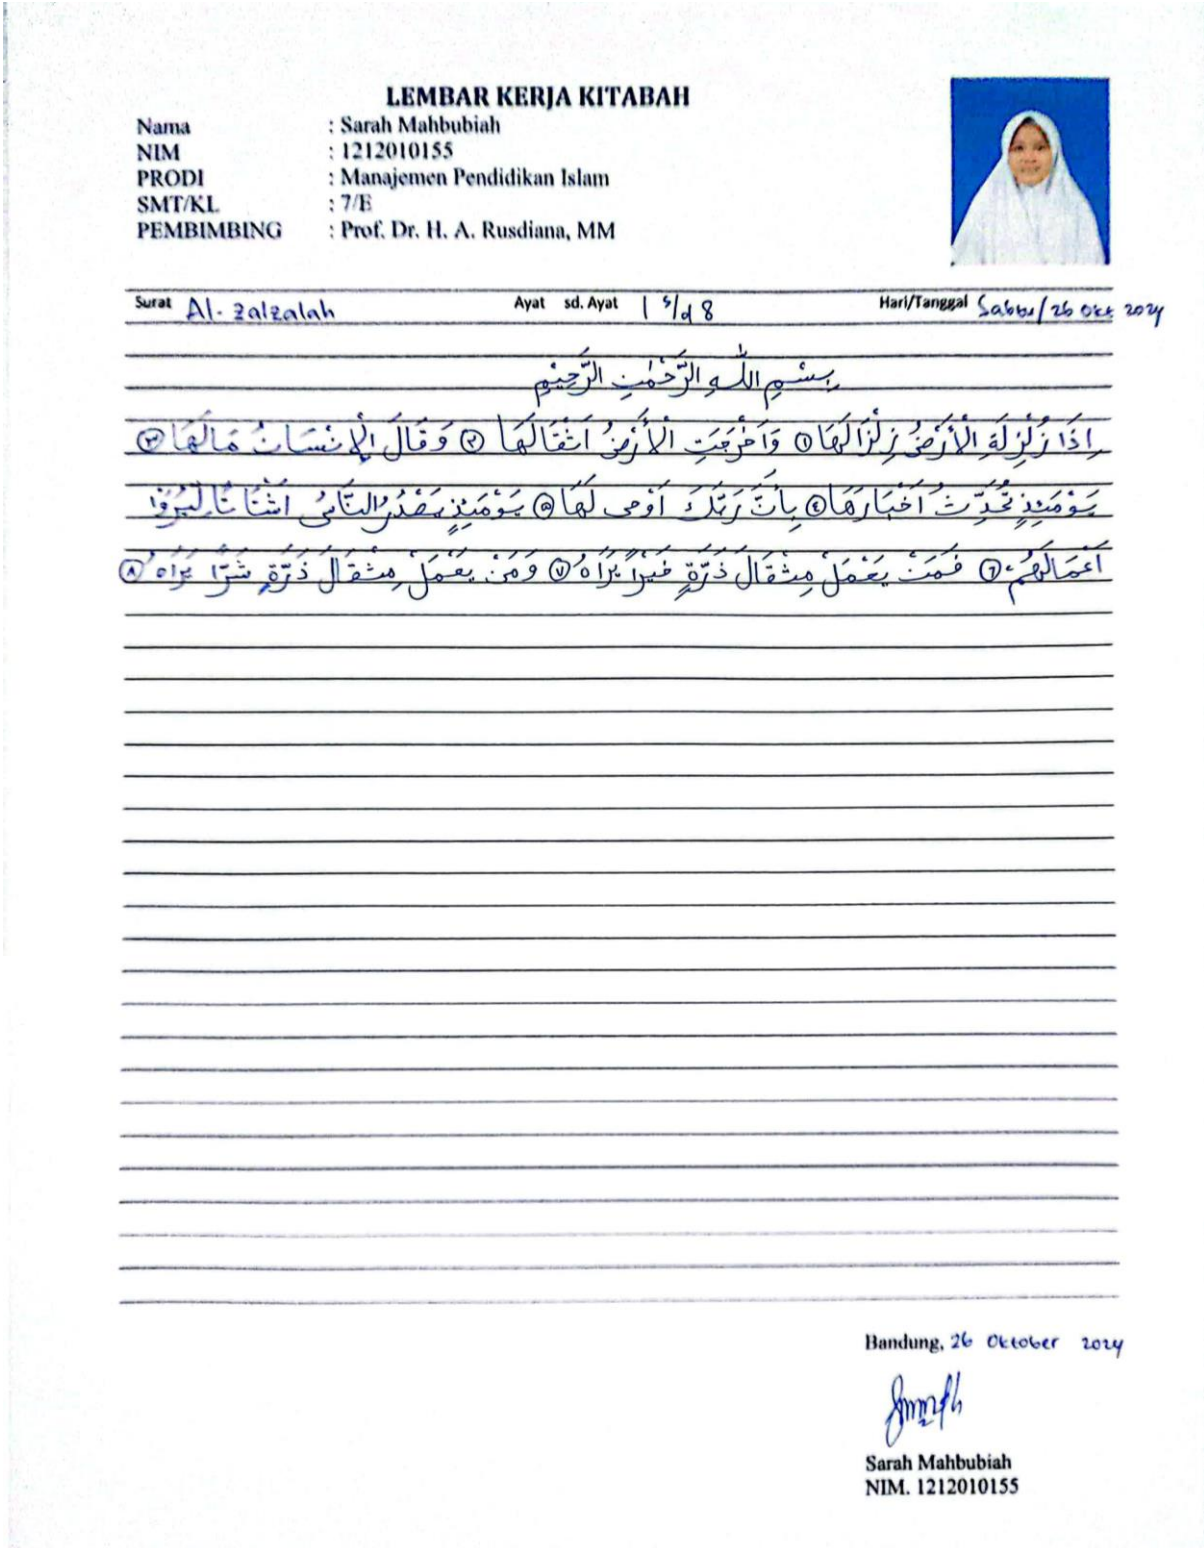 LEMBAR KERJA KITABAH
Nama : Sarah Mahbubiah
NIM : 1212010155
PRODI : Manajemen Pendidikan Islam
SMT/KL : 7/E
PEMBIMBING : Prof. Dr. H. A. Rusdiana, MM
Surat Al-Zalzalah Ayat sd. Ayat 1 s/d 8 Hari/Tanggal Sabtu/26 Okt 2024
بِسْمِ اللّٰهِ الرَّحْمٰنِ الرَّحِيْمِ
اِذَا زُلْزِلَةِ الْأَرْضُ زِلْزَالَهَا ١ وَاَخْرَجَتِ الْأَرْضُ اَثْقَالَهَا ٢ وَقَالَ الْإِنْسَانُ مَالَهَا ٣
يَوْمَئِذٍ تُحَدِّثُ اَخْبَارَهَا ٤ بِاَنَّ رَبَّكَ اَوْحٰى لَهَا ٥ يَوْمَئِذٍ يَصْدُرُ النَّاسُ اَشْتَاتًا لِيُرَوْا
اَعْمَالَهُمْ ٦ فَمَنْ يَعْمَلْ مِثْقَالَ ذَرَّةٍ خَيْرًا يَرَاهُ ٧ وَمَنْ يَعْمَلْ مِثْقَالَ ذَرَّةٍ شَرًّا يَرَاهُ ٨
Bandung, 26 Oktober 2024
Sarah Mahbubiah
NIM. 1212010155